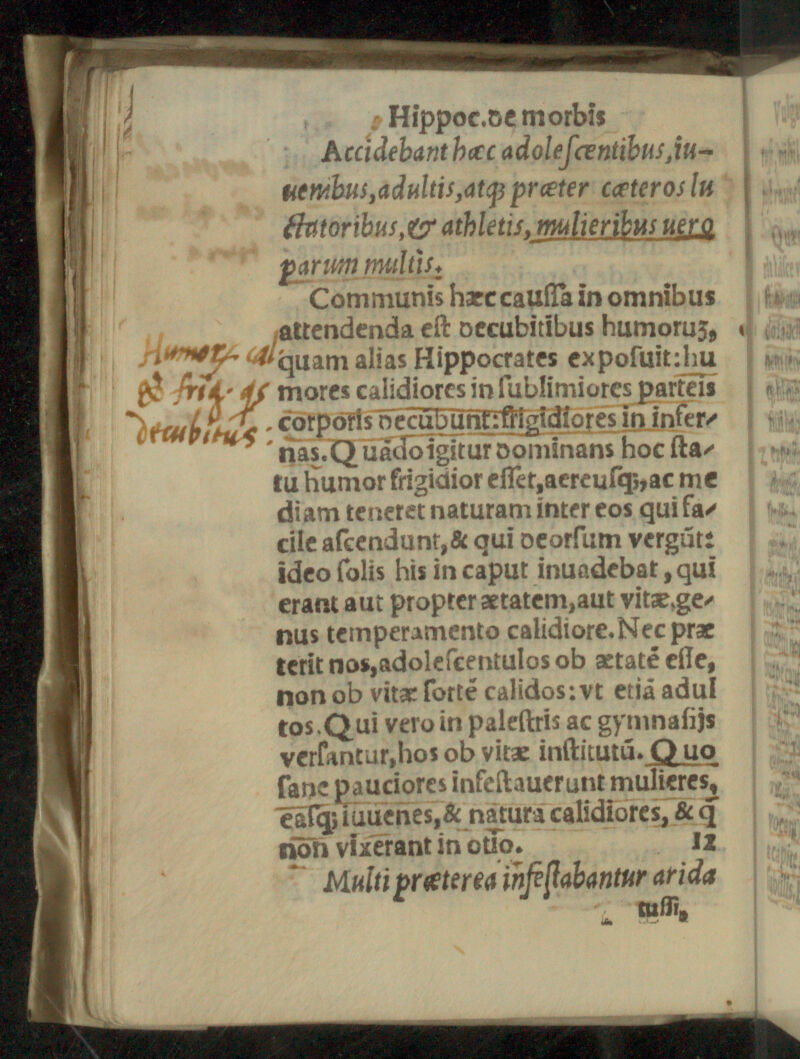 Hippoc.de morbis
Accidebant hæc adoleſcentibus,iu-
uenibus,adultis,atq; præter cæteros lu
ctatoribus,& athletis, mulieribus uero
parum multis.
Communis hæc cauſſa in omnibus
attendenda eſt decubitibus humoruꝫ,
quam alias Hippocrates expoſuit:hu
mores calidiores in ſublimiores parteis
corporis decubunt:frigidiores in infer-
nas.Quādo igitur dominans hoc ſta-
tu humor frigidior eſſet,aereuſq;,ac me
diam teneret naturam inter eos qui fa-
cile aſcendunt,& qui deorſum vergūt:
ideo ſolis his in caput inuadebat, qui
erant aut propter ætatem,aut vitæ,ge-
nus temperamento calidiore.Nec præ
terit nos,adoleſcentulos ob ætatē eſſe,
non ob vitæ fortē calidos: vt etiā adul
tos.Qui vero in paleſtris ac gymnaſijs
verſantur,hos ob vitæ inſtitutū. Quo
ſane pauciores infeſtauerunt mulieres,
eaſq; iuuenes,& natura calidiores, & q̄
non vixerant in otio. 12
Multi præterea infeſtabantur arida
tuſſi,
Humor
decubitus